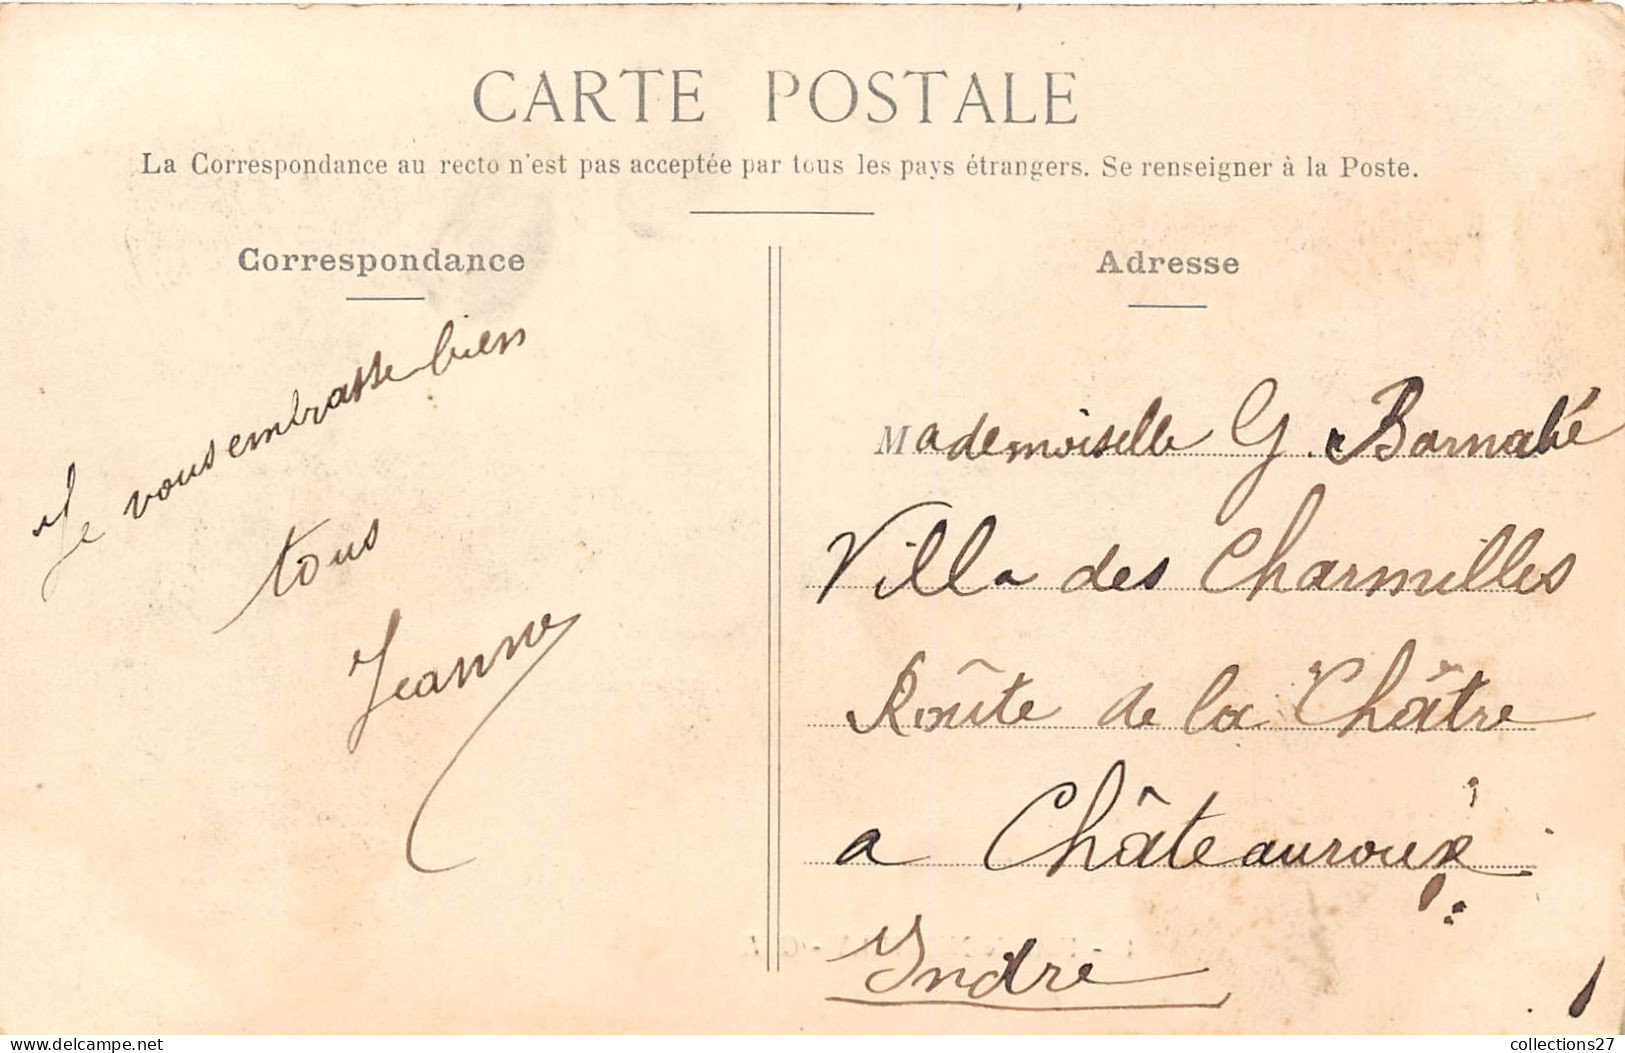 CARTE POSTALE
La Correspondance au recto n'est pas acceptée par tous les pays étrangers. Se renseigner à la Poste.
Correspondance
Je vous embrasse bien
tous
Jeanne
Adresse
Mademoiselle G. Barnabé
Villa des Charmilles
Roûte de la Châtre
a Châteauroux
Indre
collections27